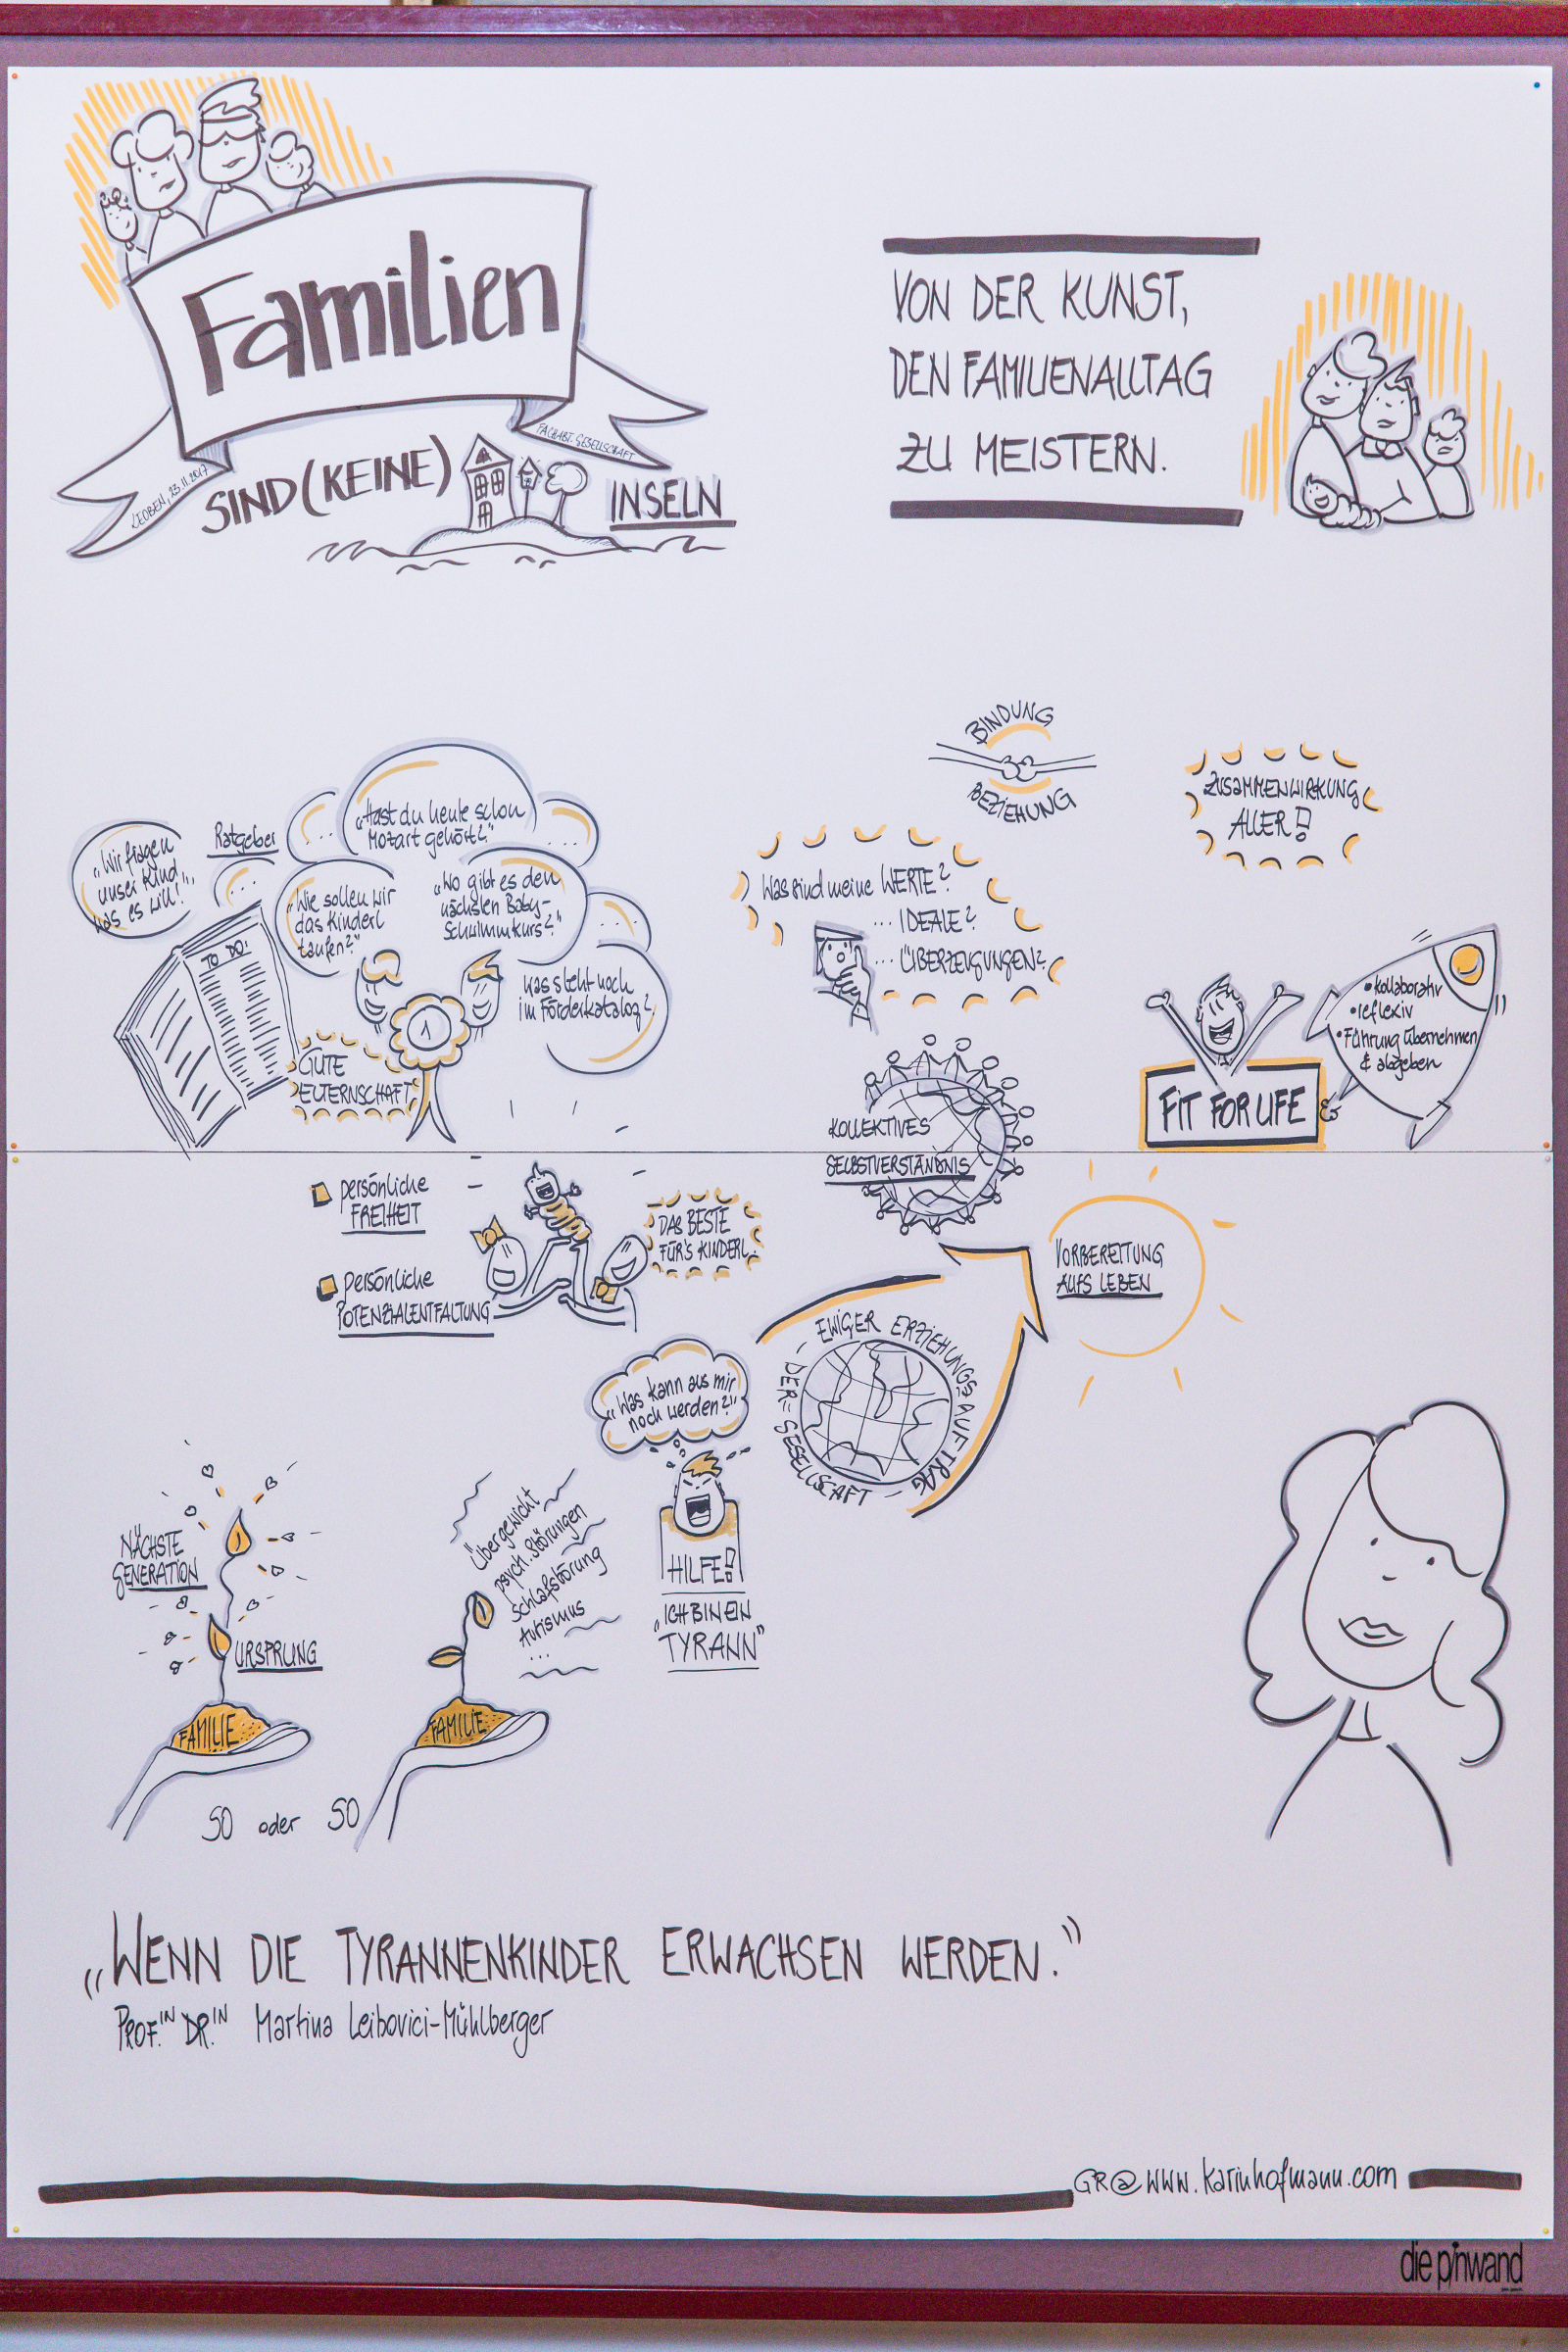 Familien
LEOBEN, 23.11.2017
FACHABT. GESELLSCHAFT
SIND (KEINE)
INSELN
VON DER KUNST,
DEN FAMILIENALLTAG
ZU MEISTERN.
BINDUNG
BEZIEHUNG
ZUSAMMENWIRKUNG
ALLER!
„Wir fragen
unser Kind,
was es will!"
Ratgeber
...
...
„Hast du heute schon
Mozart gehört?"
...
„Wie sollen wir
das Kinderl
taufen?"
„Wo gibt es den
nächsten Baby-
Schwimmkurs?"
...
Was steht noch
im Förderkatalog?
TO DO!
1
GUTE
ELTERNSCHAFT
Was sind meine WERTE?
... IDEALE?
... ÜBERZEUGUNGEN?
• kollaborativ
• reflexiv
• Führung übernehmen
& abgeben
FIT FOR LIFE &
KOLLEKTIVES
SELBSTVERSTÄNDNIS
persönliche
FREIHEIT
persönliche
POTENZIALENTFALTUNG
DAS BESTE
FÜR'S KINDERL.
VORBEREITUNG
AUFS LEBEN
EWIGER ERZIEHUNGSAUFTRAG
- DER GESELLSCHAFT -
„Was kann aus mir
noch werden?!"
HILFE!
„ICH BIN EIN
TYRANN"
NÄCHSTE
GENERATION
URSPRUNG
FAMILIE
Übergewicht
psych. Störungen
Schlafstörung
Autismus
...
FAMILIE
SO oder SO
„WENN DIE TYRANNENKINDER ERWACHSEN WERDEN."
PROF.IN DR.IN Martina Leibovici-Mühlberger
GR@www.karinhofmann.com
die pinwand